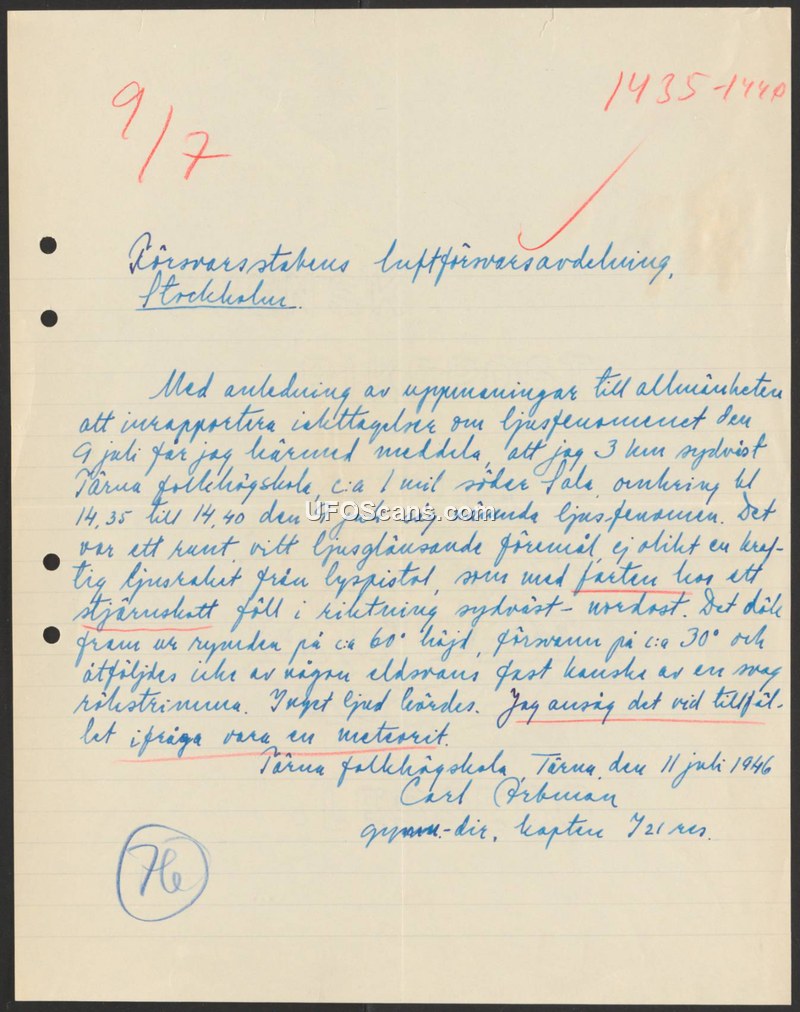 9/7
1435-1440
Försvarsstabens luftförsvarsavdelning,
Stockholm.
Med anledning av uppmaningar till allmänheten
att inrapportera iakttagelser om ljusfenomenet den
9 juli får jag härmed meddela, att jag 3 km sydväst
Tärna folkhögskola, c:a 1 mil söder Sala, omkring kl
14,35 till 14,40 den 9 juli såg nämnda ljusfenomen. Det
UFOScans.com
var ett runt, vitt ljusglänsande föremål, ej olikt en kraf-
tig ljusraket från lyspistol, som med farten hos ett
stjärnskott föll i riktning sydväst-nordost. Det dök
fram ur rymden på c:a 60° höjd, försvann på c:a 30° och
åtföljdes icke av någon eldsvans fast kanske av en svag
rökstrimma. Inget ljud hördes. Jag ansåg det vid tillfäl-
let ifråga vara en meteorit.
Tärna folkhögskola, Tärna, den 11 juli 1946
Carl Arbman
gymn.-dir. kapten I 21 res.
76